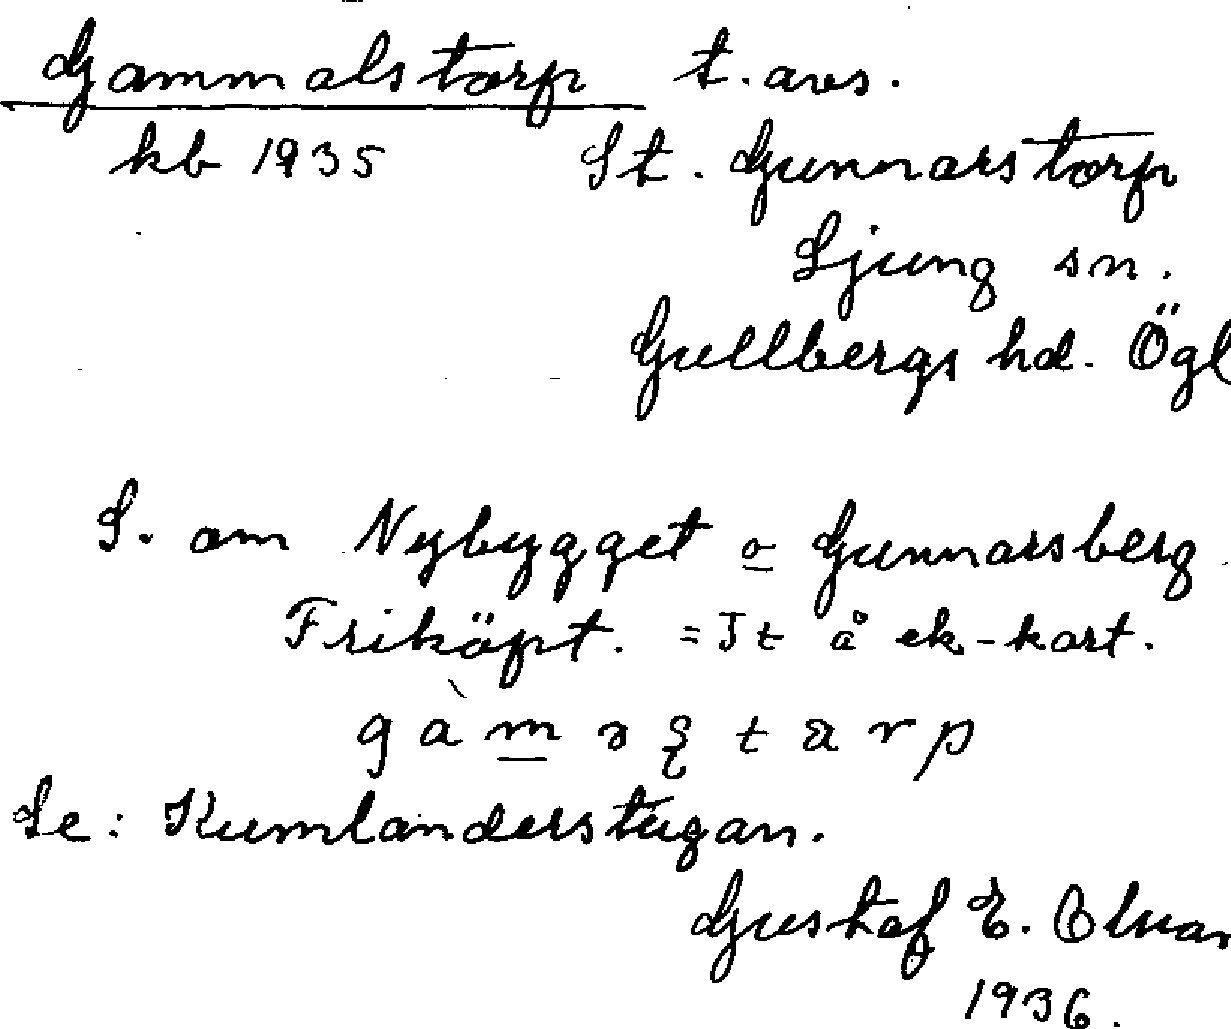 Gammalstorp t. avs.
kb 1935 St. Gunnarstorp
Ljung sn.
Gullbergs hd. Ögl
S. om Nybygget o Gunnarsberg
Friköpt. = Jt å ek-kart.
Se: Kumlanderstugan.
Gustaf E.
1936.